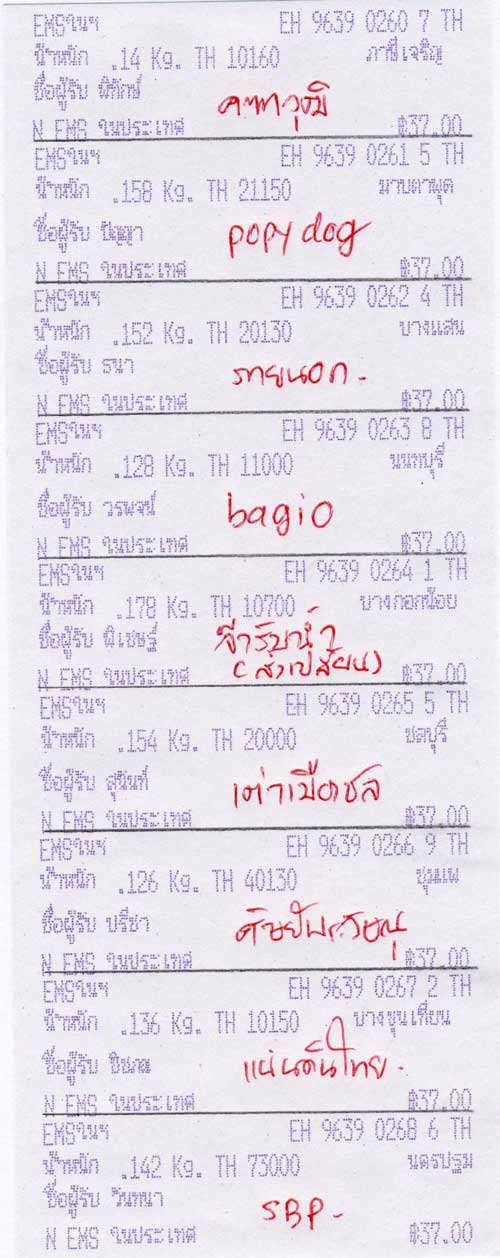 EMSในฯ EH 9639 0260 7 TH
น้ำหนัก .14 Kg. TH 10160 ภาษีเจริญ
ชื่อผู้รับ พิทักษ์
N EMS ในประเทศ ฿37.00
EMSในฯ EH 9639 0261 5 TH
น้ำหนัก .158 Kg. TH 21150 มาบตาพุด
ชื่อผู้รับ ปัญญา popy dog
N EMS ในประเทศ ฿37.00
EMSในฯ EH 9639 0262 4 TH
น้ำหนัก .152 Kg. TH 20130 บางแสน
ชื่อผู้รับ ธนา ภายนอก -
N EMS ในประเทศ ฿37.00
EMSในฯ EH 9639 0263 8 TH
น้ำหนัก .128 Kg. TH 11000 นนทบุรี
ชื่อผู้รับ วรพจน์ bagio
N EMS ในประเทศ ฿37.00
EMSในฯ EH 9639 0264 1 TH
น้ำหนัก .178 Kg. TH 10700 บางกอกน้อย
ชื่อผู้รับ พิเชษฐ์
N EMS ในประเทศ ฿37.00
EMSในฯ EH 9639 0265 5 TH
น้ำหนัก .154 Kg. TH 20000 ชลบุรี
ชื่อผู้รับ สุนันท์ เต่าเมืองชล
N EMS ในประเทศ ฿37.00
EMSในฯ EH 9639 0266 9 TH
น้ำหนัก .126 Kg. TH 40130 ชุมแพ
ชื่อผู้รับ ปรีชา
N EMS ในประเทศ ฿37.00
EMSในฯ EH 9639 0267 2 TH
น้ำหนัก .136 Kg. TH 10150 บางขุนเทียน
ชื่อผู้รับ แผ่นดินไทย -
N EMS ในประเทศ ฿37.00
EMSในฯ EH 9639 0268 6 TH
น้ำหนัก .142 Kg. TH 73000 นครปฐม
ชื่อผู้รับ วันทนา SBP -
N EMS ในประเทศ ฿37.00